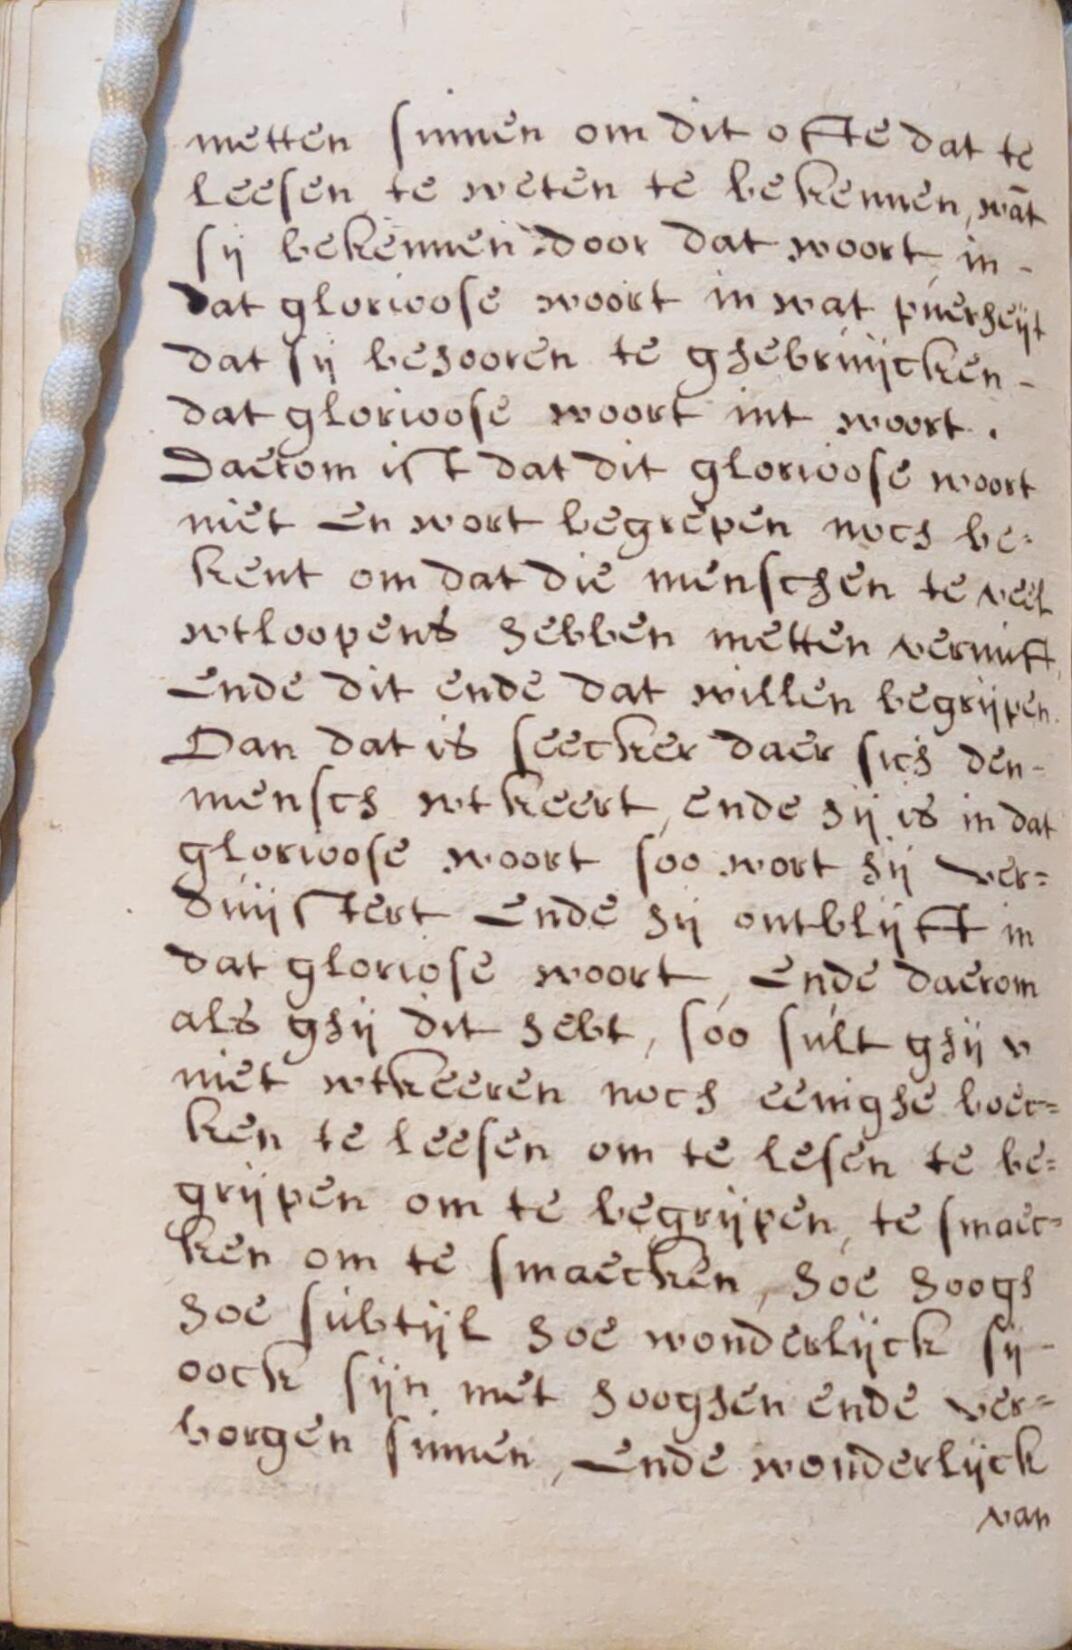 metten sinnen om dit ofte dat te
leesen te weten te bekennen, wāt
sij bekennen door dat woort in -
dat glorioose woort in wat puerheijt
dat sij behooren te ghebruijcken -
dat glorioose woort int woort .
Daerom ist dat dit glorioose woort
niet en wort begrepen noch be=
kent om dat die menschen te veel
wtloopens hebben metten vernuft,
Ende dit ende dat willen begrijpen.
Dan dat is seecker daer sich den -
mensch wtkeert, ende hij is in dat
glorioose woort soo wort hij ver=
duijstert Ende hij ontblijft in
dat gloriose woort, Ende daerom
als ghij dit hebt, soo sult ghij v
niet wtkeeren noch eenighe boec=
ken te leesen om te lesen te be=
grijpen om te begrijpen, te smaec=
ken om te smaecken, hoe hoogh
hoe subtijl hoe wonderlijck sij -
oock sijn met hooghen ende ver=
borgen sinnen, Ende wonderlijck
van